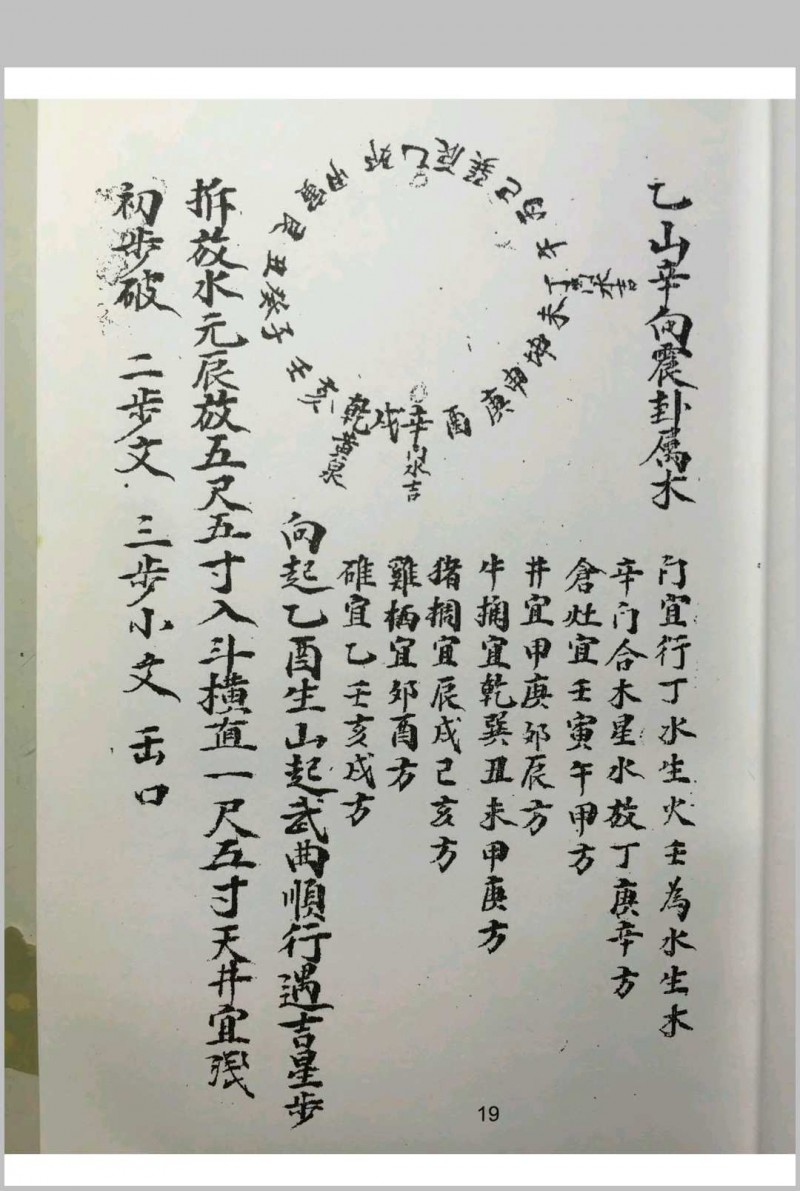 乙山辛向震卦属木
门宜行丁水生火壬為水生木
辛门合木星水放丁庚辛方
倉灶宜壬寅午甲方
井宜甲庚卯辰方
牛捅宜乾巽丑未甲庚方
猪椆宜辰戌己亥方
雞栖宜卯酉方
碓宜乙壬亥戌方
向起乙酉生山起武曲順行遇吉星步
拆放水元辰放五尺五寸入斗横直一尺五寸天井宜
初步破 二步文 三步小文 缶口
乙辰巽巳丙午丁未坤申庚酉辛戌乾亥壬子癸丑艮寅甲卯
水吉
水吉
黄泉
19